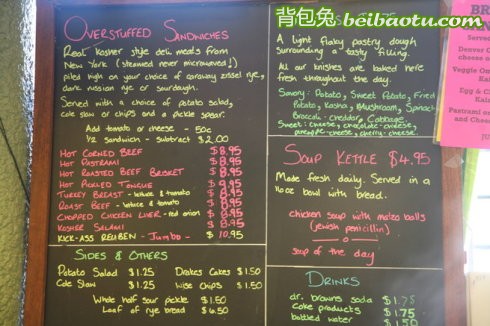 背包兔 beibaotu.com
OVERSTUFFED SANDWICHES
Real kosher style deli meats from
New York (steamed never microwaved!)
piled high on your choice of caraway seeded rye,
dark russian rye or sourdough.
Served with a choice of potato salad,
cole slaw or chips and a pickle spear.
Add tomato or cheese - 50¢
1/2 sandwich - subtract $2.00
HOT CORNED BEEF $8.95
HOT PASTRAMI $8.95
HOT ROASTED BEEF BRISKET $8.95
HOT PICKLED TONGUE $9.95
TURKEY BREAST - lettuce & tomato $8.95
ROAST BEEF - lettuce & tomato $8.95
CHOPPED CHICKEN LIVER - red onion $8.95
KOSHER SALAMI $8.95
KICK-ASS REUBEN - Jumbo - $10.95
SIDES & OTHERS
Potato Salad $1.25 Drakes Cakes $1.50
Cole Slaw $1.25 Wise Chips $1.50
Whole half sour pickle $1.50
Loaf of rye bread $6.50
A light flaky pastry dough
surrounding a tasty filling.
All our knishes are baked here
fresh throughout the day.
Savory: Potato, Sweet Potato, Fried
Potato, Kasha, Mushroom, Spinach
Broccoli-cheddar, Cabbage
Sweet: cheese, chocolate-cheese,
pineapple-cheese, cherry-cheese.
SOUP KETTLE $4.95
Made fresh daily. Served in a
16oz bowl with bread.
chicken soup with matzo balls
(jewish penicillin)
o
soup of the day
DRINKS
dr. browns soda $1.75
coke products $1.75
bottled water $1.50
BR
Served
Denver O
chees
Veggie Om
Kai
Egg & C
Kai
Pastrami o
and Chee
JU